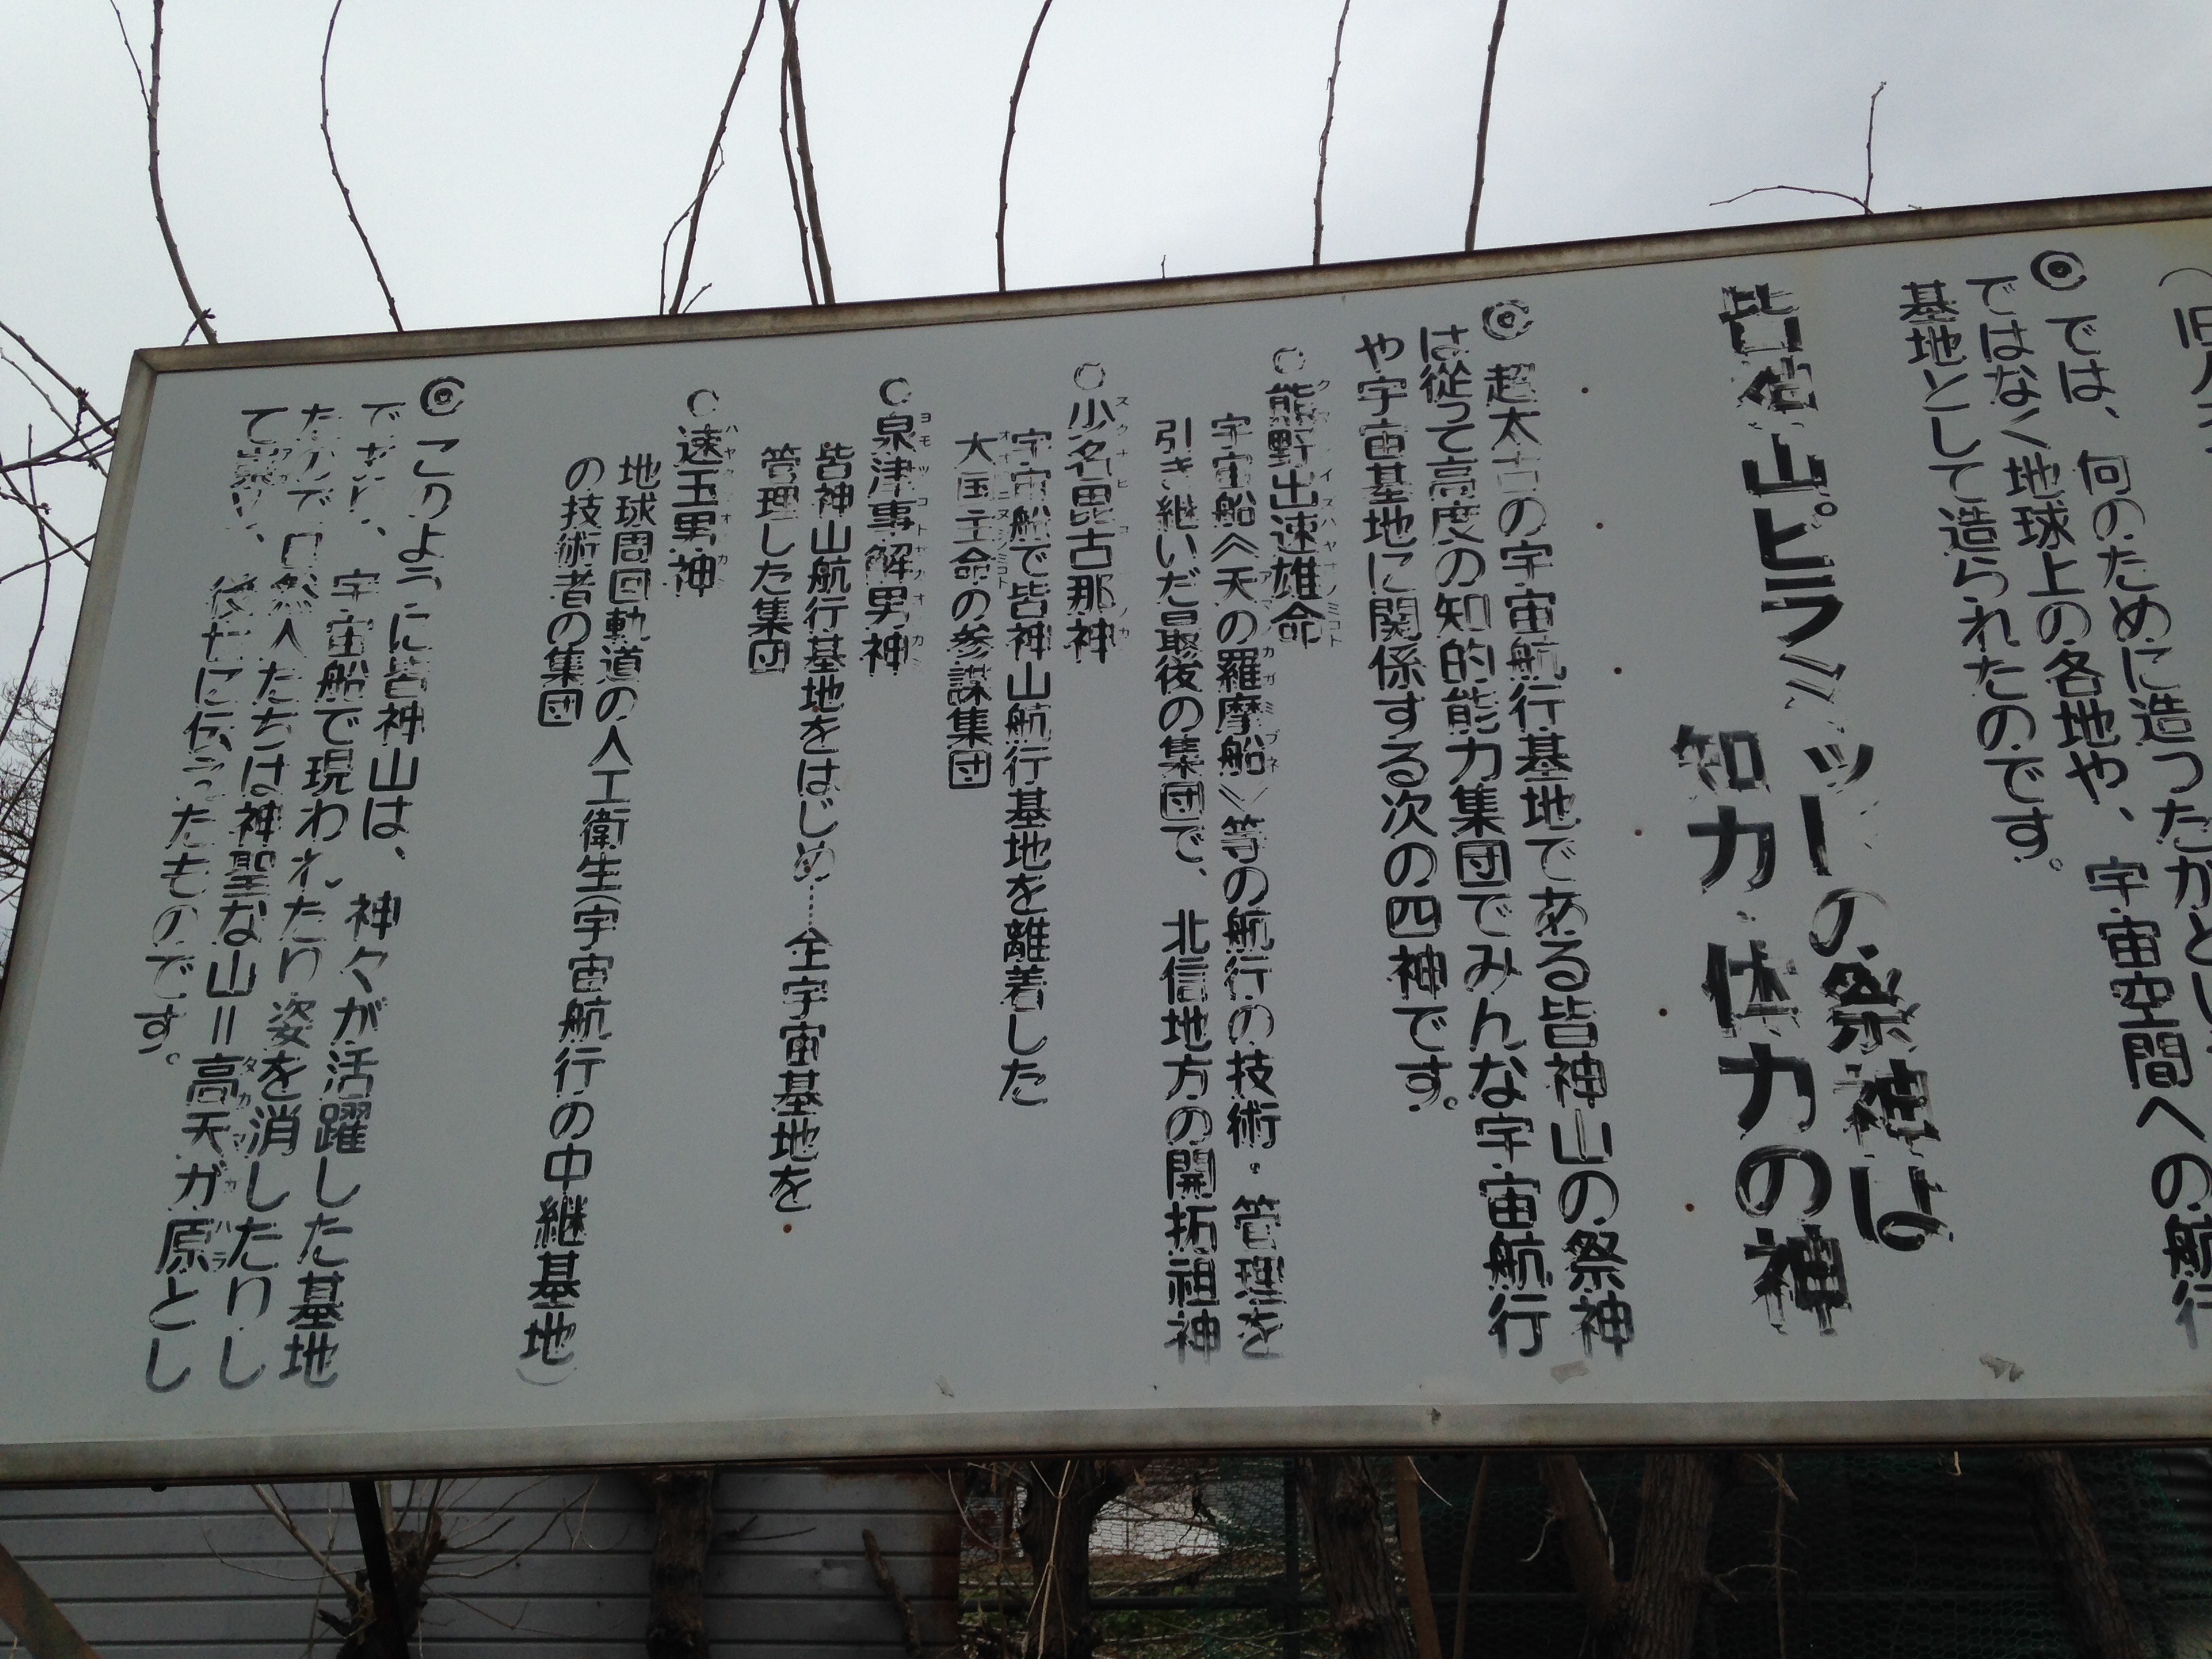 （旧
◎では、何のために造ったかとい
ではなく地球上の各地や、宇宙空間への航行
基地として造られたのです。
皆神山ピラミッドの祭神は
知力・体力の神
◎超太古の宇宙航行基地である皆神山の祭神
は従って高度の知的能力集団でみんな宇宙航行
や宇宙基地に関係する次の四神です。
○熊野出速雄命
宇宙船〈天の羅摩船〉等の航行の技術・管理を
引き継いだ最後の集団で、北信地方の開拓祖神
○少名毘古那神
宇宙船で皆神山航行基地を離着した
大国主命の参謀集団
○泉津事解男神
皆神山航行基地をはじめ……全宇宙基地を
管理した集団
○速玉男神
地球周回軌道の人工衛生（宇宙航行の中継基地）
の技術者の集団
◎このように皆神山は、神々が活躍した基地
であり、宇宙船で現われたり姿を消したりし
たので自然人たちは神聖な山＝高天ガ原とし
て崇り、後世に伝ったものです。